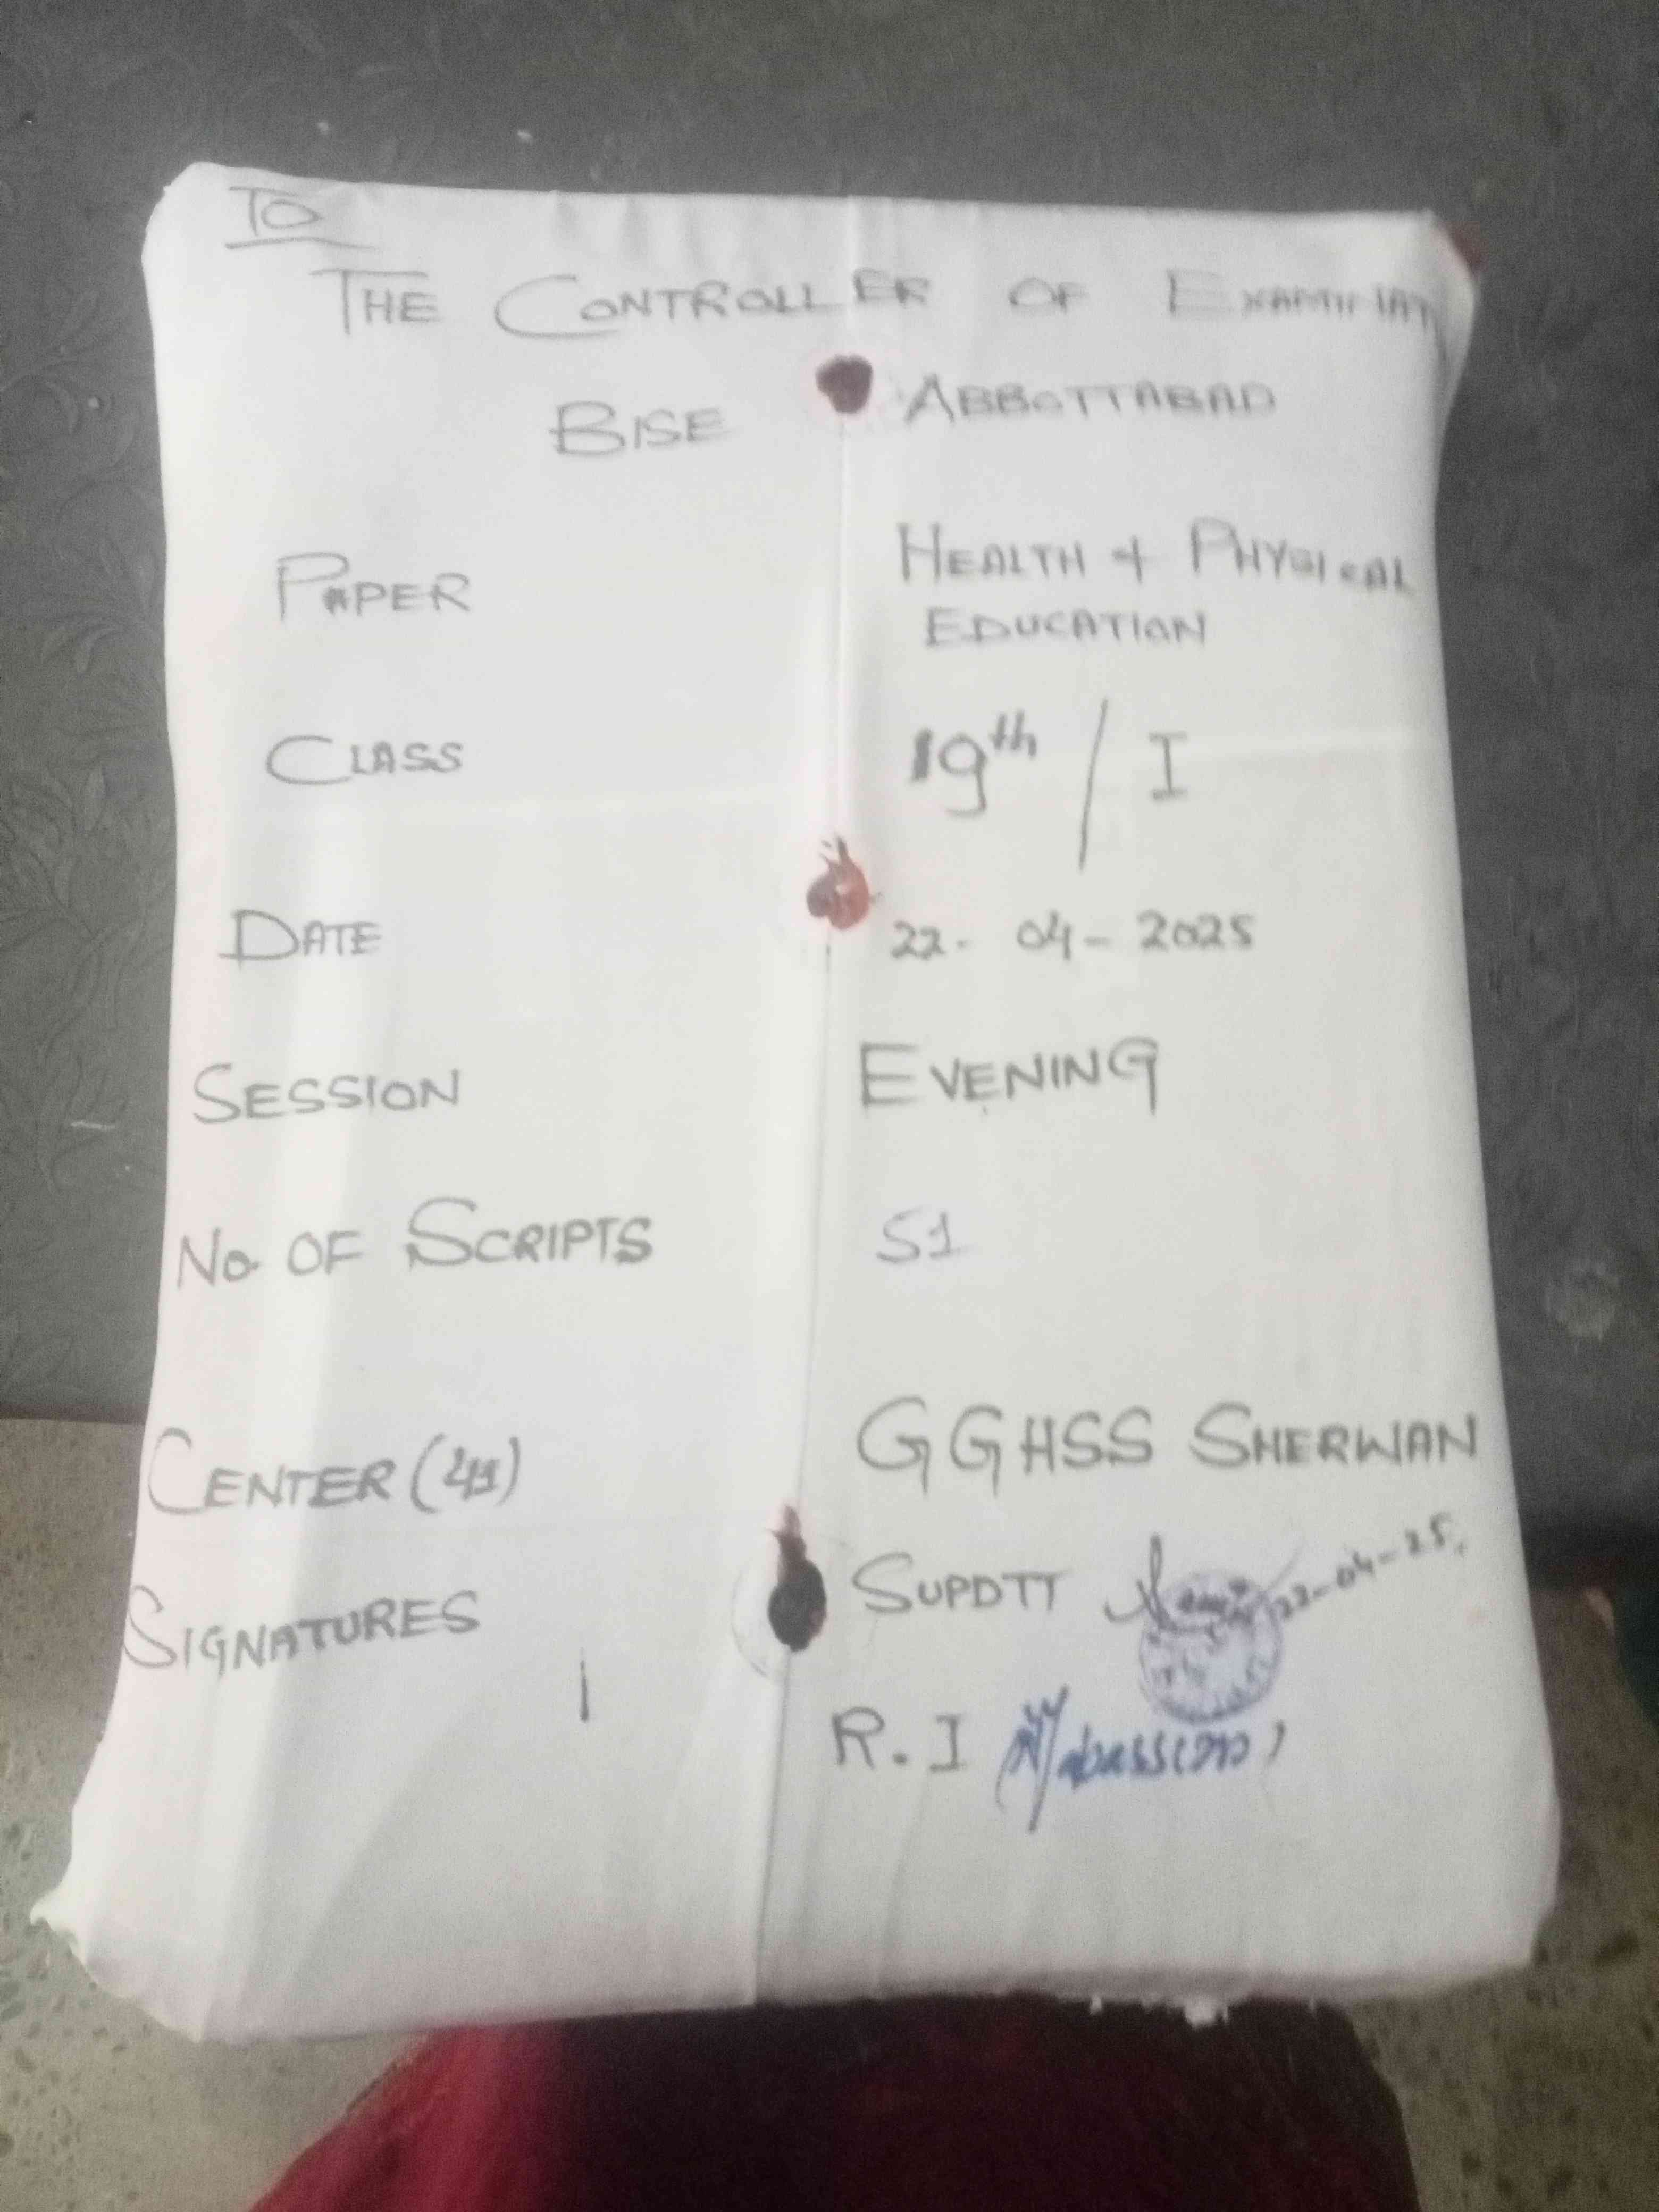 To
THE CONTROLLER OF EXAMINAT
BISE ABBOTTABAD
PAPER HEALTH & PHYSICAL
EDUCATION
CLASS 19th / I
DATE 22-04-2025
SESSION EVENING
No OF SCRIPTS 51
CENTER (41) GGHSS SHERWAN
SIGNATURES SUPDTT 22-04-25
R.I